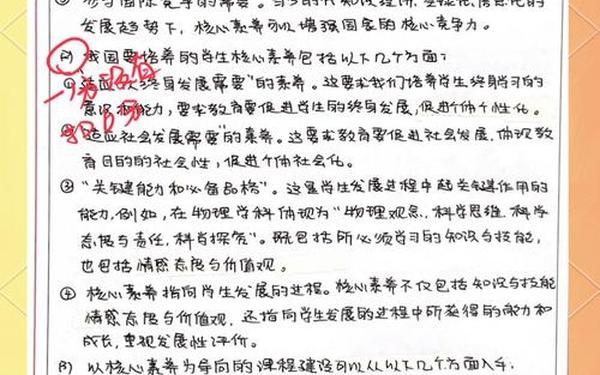 发展趋势下，核心素养可以增强国家的核心竞争力。
(2) 我国要培养的学生核心素养包括以下几个方面：
一分没有
“适应个人终身发展需要”的素养。这要求我们培养学生终身学习的
意识和能力，要求教育要促进学生的终身发展，促进个体个性化。
扣6分
“适应社会发展需要”的素养。这要求教育要促进社会发展，体现教
育目的的社会性，促进个体社会化。
③ “关键能力和必备品格”。这是学生发展过程中起关键作用的
能力，例如，在物理学科体现为“物理观念、科学思维、科学
态度与责任、科学探究”。既包括所必须学习的知识与技能，
也包括情感态度与价值观。
④ 核心素养指向学生发展的过程。核心素养不仅包括知识与技能
情感态度与价值观，还指向学生发展的过程中所获得的能力和
成长，重视发展性评价。
(3) 以核心素养为导向的课程建设可以从以下几个方面入手：